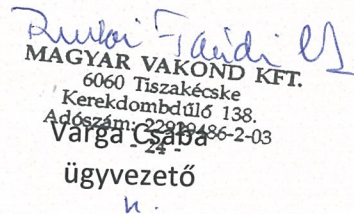 MAGYAR VAKOND KFT.
6060 Tiszakécske
Kerekdombdűlő 138.
Adószám: 22929486-2-03
Varga Csaba
- 24 -
ügyvezető
h.